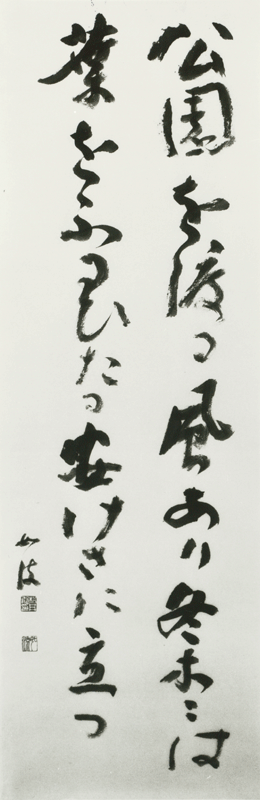 公園を渡る風あり冬木々は
葉をふるひたる安けさに立つ